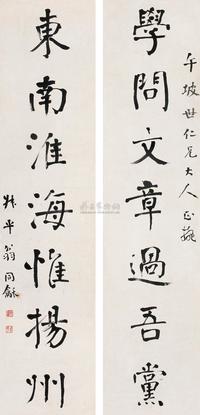 學問文章過吾黨
午坡世仁兄大人正蒓
東南淮海惟揚州
叔平翁同龢